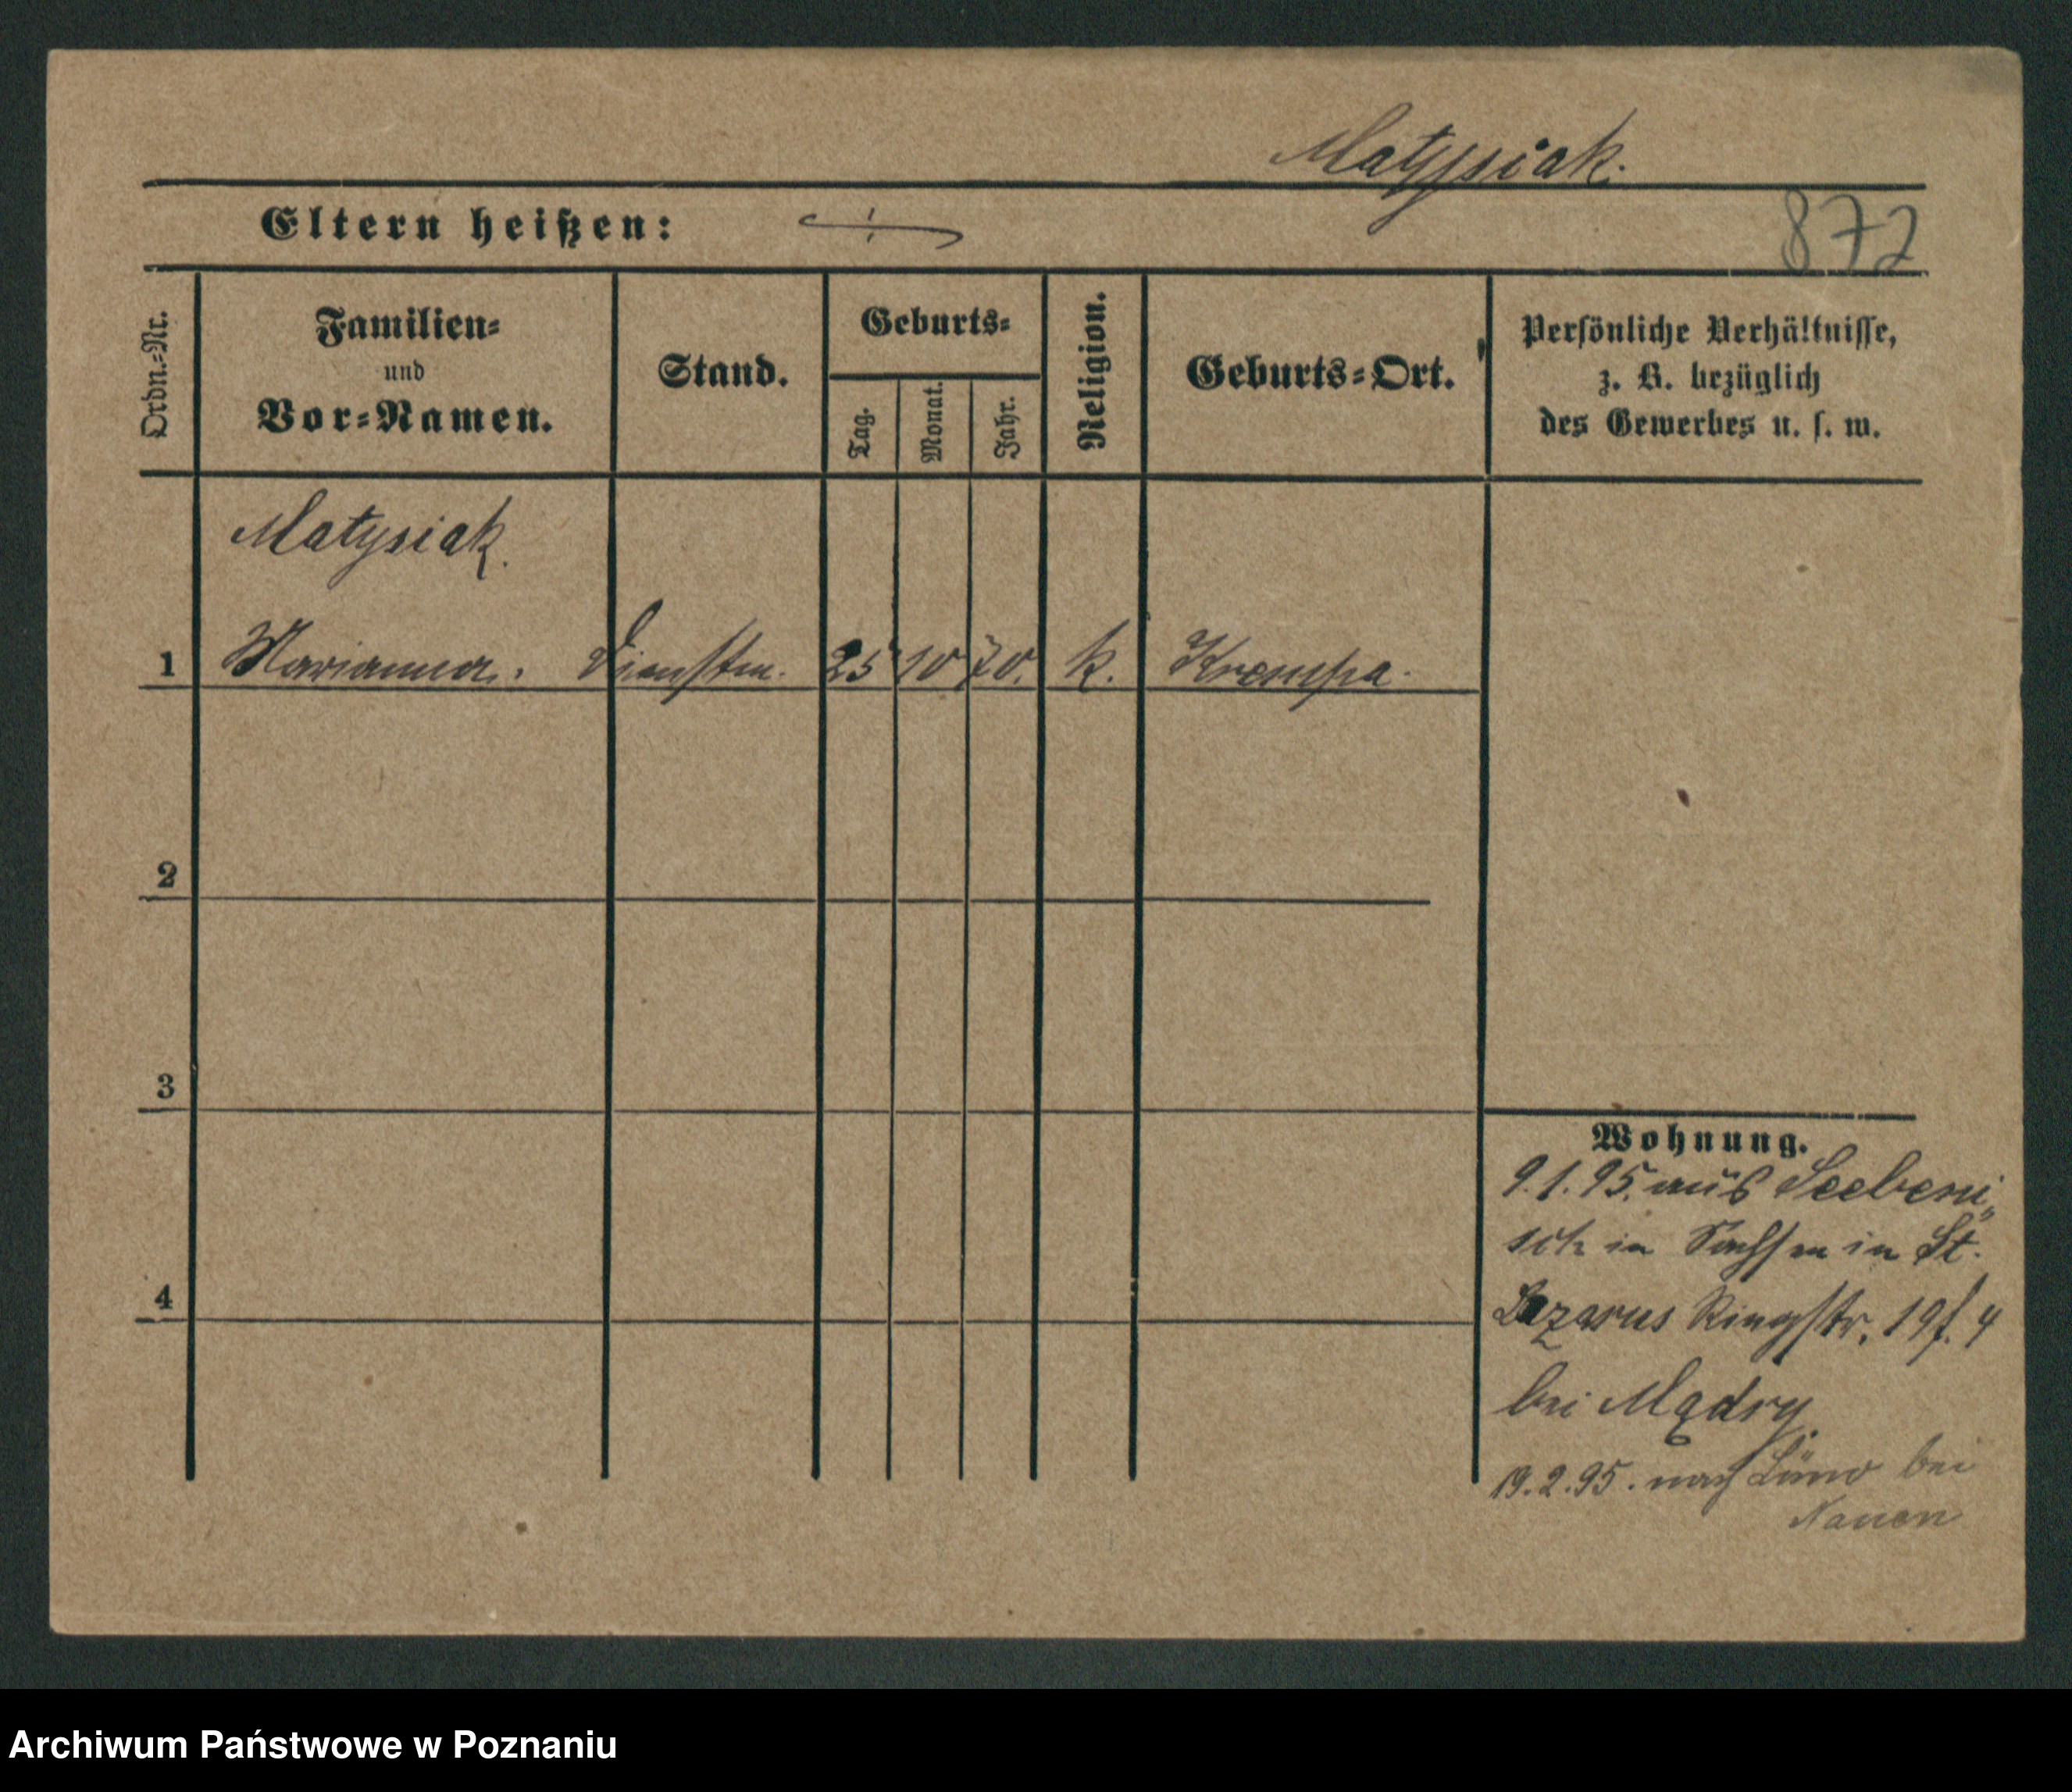 Matysiak.
Eltern heißen: ÷
872
Ordn.=Nr.
Familien=
und
Vor=Namen.
Stand.
Geburts=
Tag.
Monat.
Jahr.
Religion.
Geburts=Ort.
Persönliche Verhältnisse,
z. B. bezüglich
des Gewerbes u. s. w.
Matysiak.
1 Marianna. Dienstm. 25 10 70. k. Krempa.
2
3
4
Wohnung.
9.1.95. aus Seebeni„
sch in Sachsen in St.
Lazarus Ringstr. 19f. 4
bei Mądry.
19.2.95. nach bei
Nauen
Archiwum Państwowe w Poznaniu